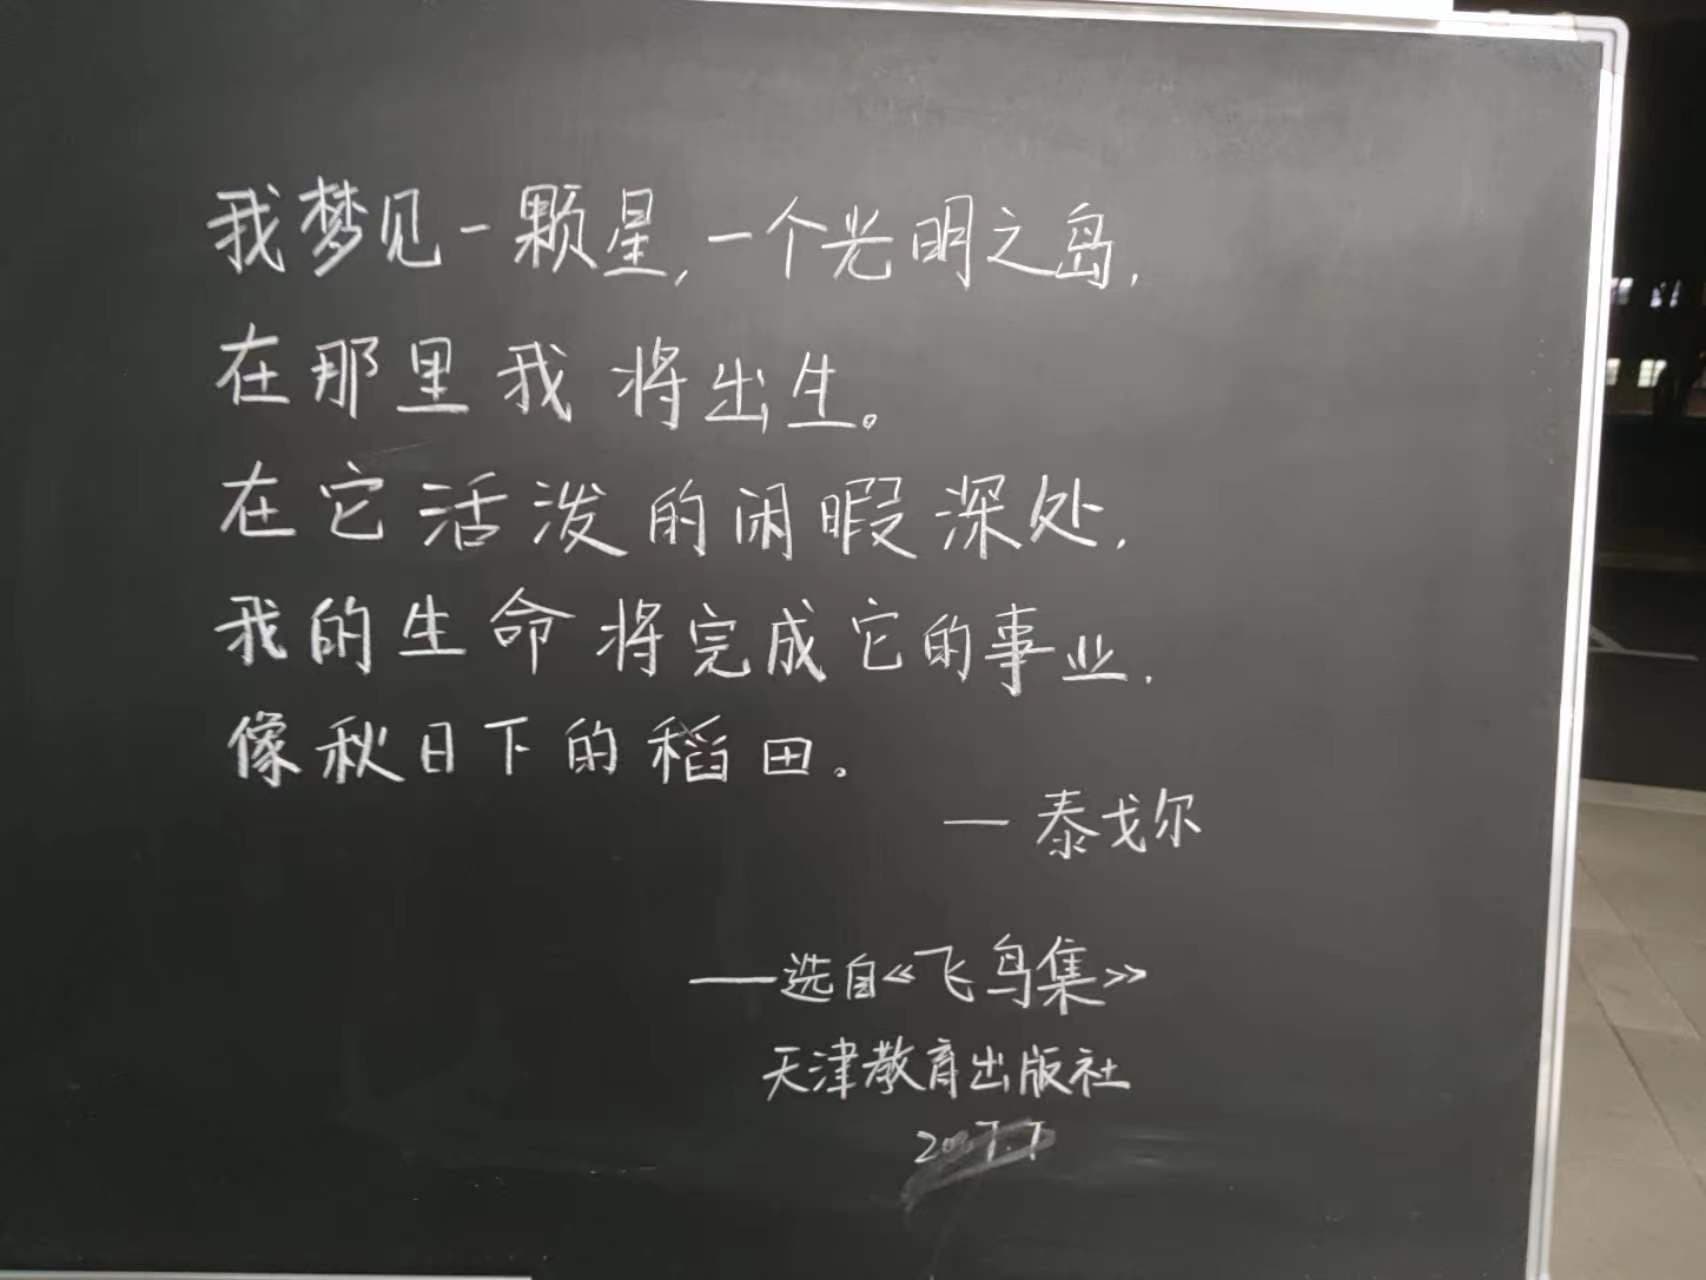 我梦见一颗星,一个光明之岛,
在那里我将出生。
在它活泼的闲暇深处,
我的生命将完成它的事业,
像秋日下的稻田。
— 泰戈尔
——选自《飞鸟集》
天津教育出版社